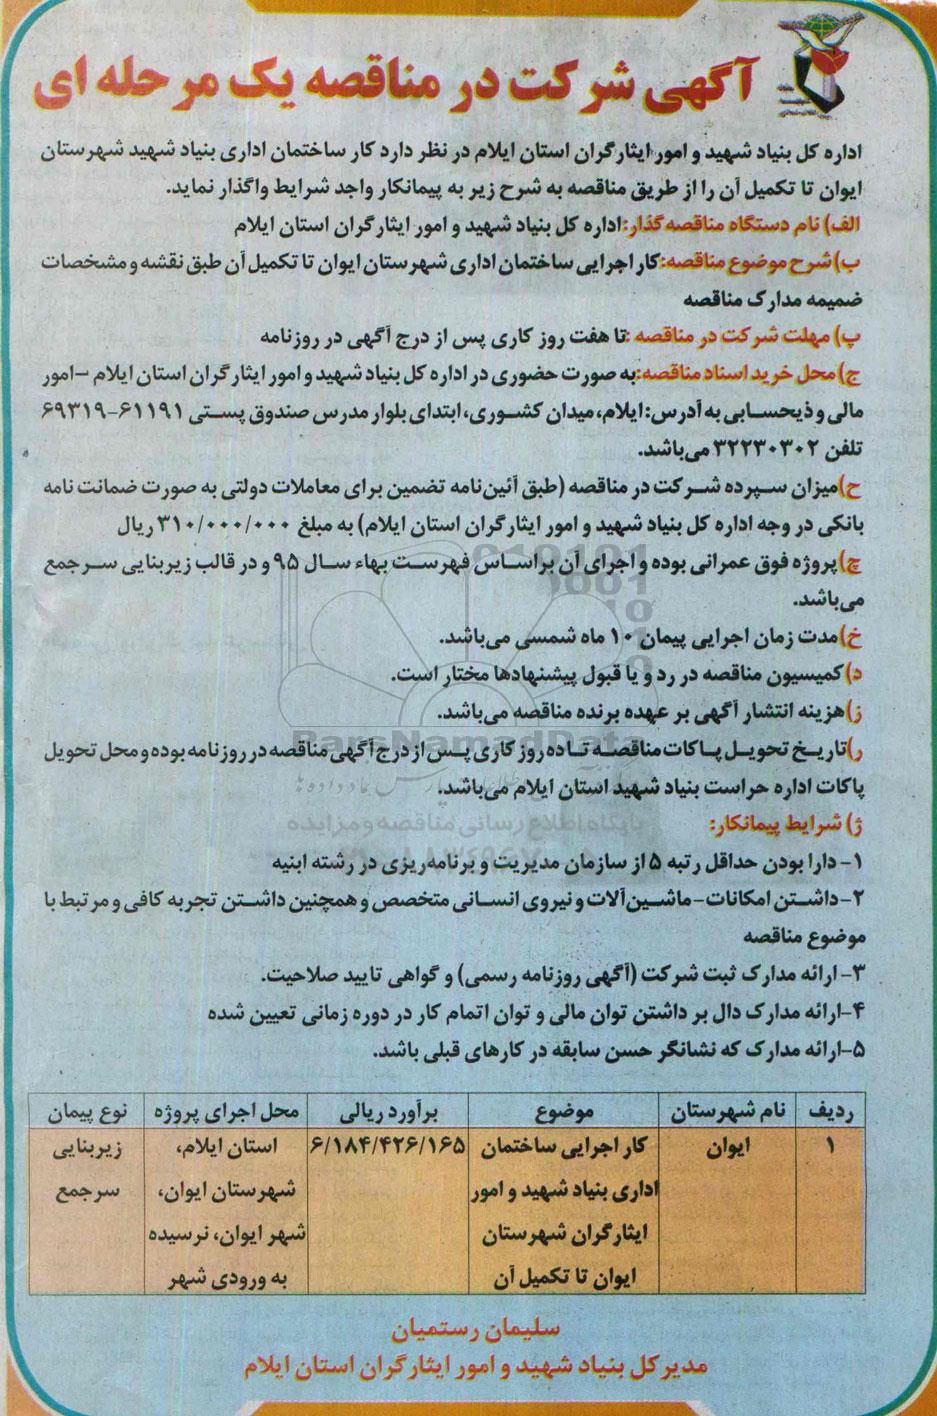 آگهی شرکت در مناقصه یک مرحله ای
اداره کل بنیاد شهید و امور ایثارگران استان ایلام در نظر دارد کار ساختمان اداری بنیاد شهید شهرستان
ایوان تا تکمیل آن را از طریق مناقصه به شرح زیر به پیمانکار واجد شرایط واگذار نماید.
الف) نام دستگاه مناقصه گذار: اداره کل بنیاد شهید و امور ایثارگران استان ایلام
ب) شرح موضوع مناقصه: کار اجرایی ساختمان اداری شهرستان ایوان تا تکمیل آن طبق نقشه و مشخصات
ضمیمه مدارک مناقصه
پ) مهلت شرکت در مناقصه: تا هفت روز کاری پس از درج آگهی در روزنامه
ج) محل خرید اسناد مناقصه: به صورت حضوری در اداره کل بنیاد شهید و امور ایثارگران استان ایلام –امور
مالی و ذیحسابی به آدرس: ایلام، میدان کشوری، ابتدای بلوار مدرس صندوق پستی ۶۱۱۹۱-۶۹۳۱۹
تلفن ۳۲۲۳۰۳۰۲ می‌باشد.
ح) میزان سپرده شرکت در مناقصه (طبق آئین‌نامه تضمین برای معاملات دولتی به صورت ضمانت نامه
بانکی در وجه اداره کل بنیاد شهید و امور ایثارگران استان ایلام) به مبلغ ۳۱۰/۰۰۰/۰۰۰ ریال
چ) پروژه فوق عمرانی بوده و اجرای آن براساس فهرست بهاء سال ۹۵ و در قالب زیربنایی سرجمع
می‌باشد.
خ) مدت زمان اجرایی پیمان ۱۰ ماه شمسی می‌باشد.
د) کمیسیون مناقصه در رد و یا قبول پیشنهادها مختار است.
ز) هزینه انتشار آگهی بر عهده برنده مناقصه می‌باشد.
ر) تاریخ تحویل پاکات مناقصه تا ده روز کاری پس از درج آگهی مناقصه در روزنامه بوده و محل تحویل
پاکات اداره حراست بنیاد شهید استان ایلام می‌باشد.
ژ) شرایط پیمانکار:
۱- دارا بودن حداقل رتبه ۵ از سازمان مدیریت و برنامه‌ریزی در رشته ابنیه
۲- داشتن امکانات- ماشین‌آلات و نیروی انسانی متخصص و همچنین داشتن تجربه کافی و مرتبط با
موضوع مناقصه
۳- ارائه مدارک ثبت شرکت (آگهی روزنامه رسمی) و گواهی تایید صلاحیت.
۴-ارائه مدارک دال بر داشتن توان مالی و توان اتمام کار در دوره زمانی تعیین شده
۵-ارائه مدارک که نشانگر حسن سابقه در کارهای قبلی باشد.
ردیف نام شهرستان موضوع برآورد ریالی محل اجرای پروژه نوع پیمان
۱ ایوان کار اجرایی ساختمان ۶/۱۸۴/۴۲۶/۱۶۵ استان ایلام، زیربنایی
اداری بنیاد شهید و امور شهرستان ایوان، سرجمع
ایثارگران شهرستان شهر ایوان، نرسیده
ایوان تا تکمیل آن به ورودی شهر
سلیمان رستمیان
مدیرکل بنیاد شهید و امور ایثارگران استان ایلام
ParsNamadData
پایگاه اطلاع رسانی مناقصه و مزایده